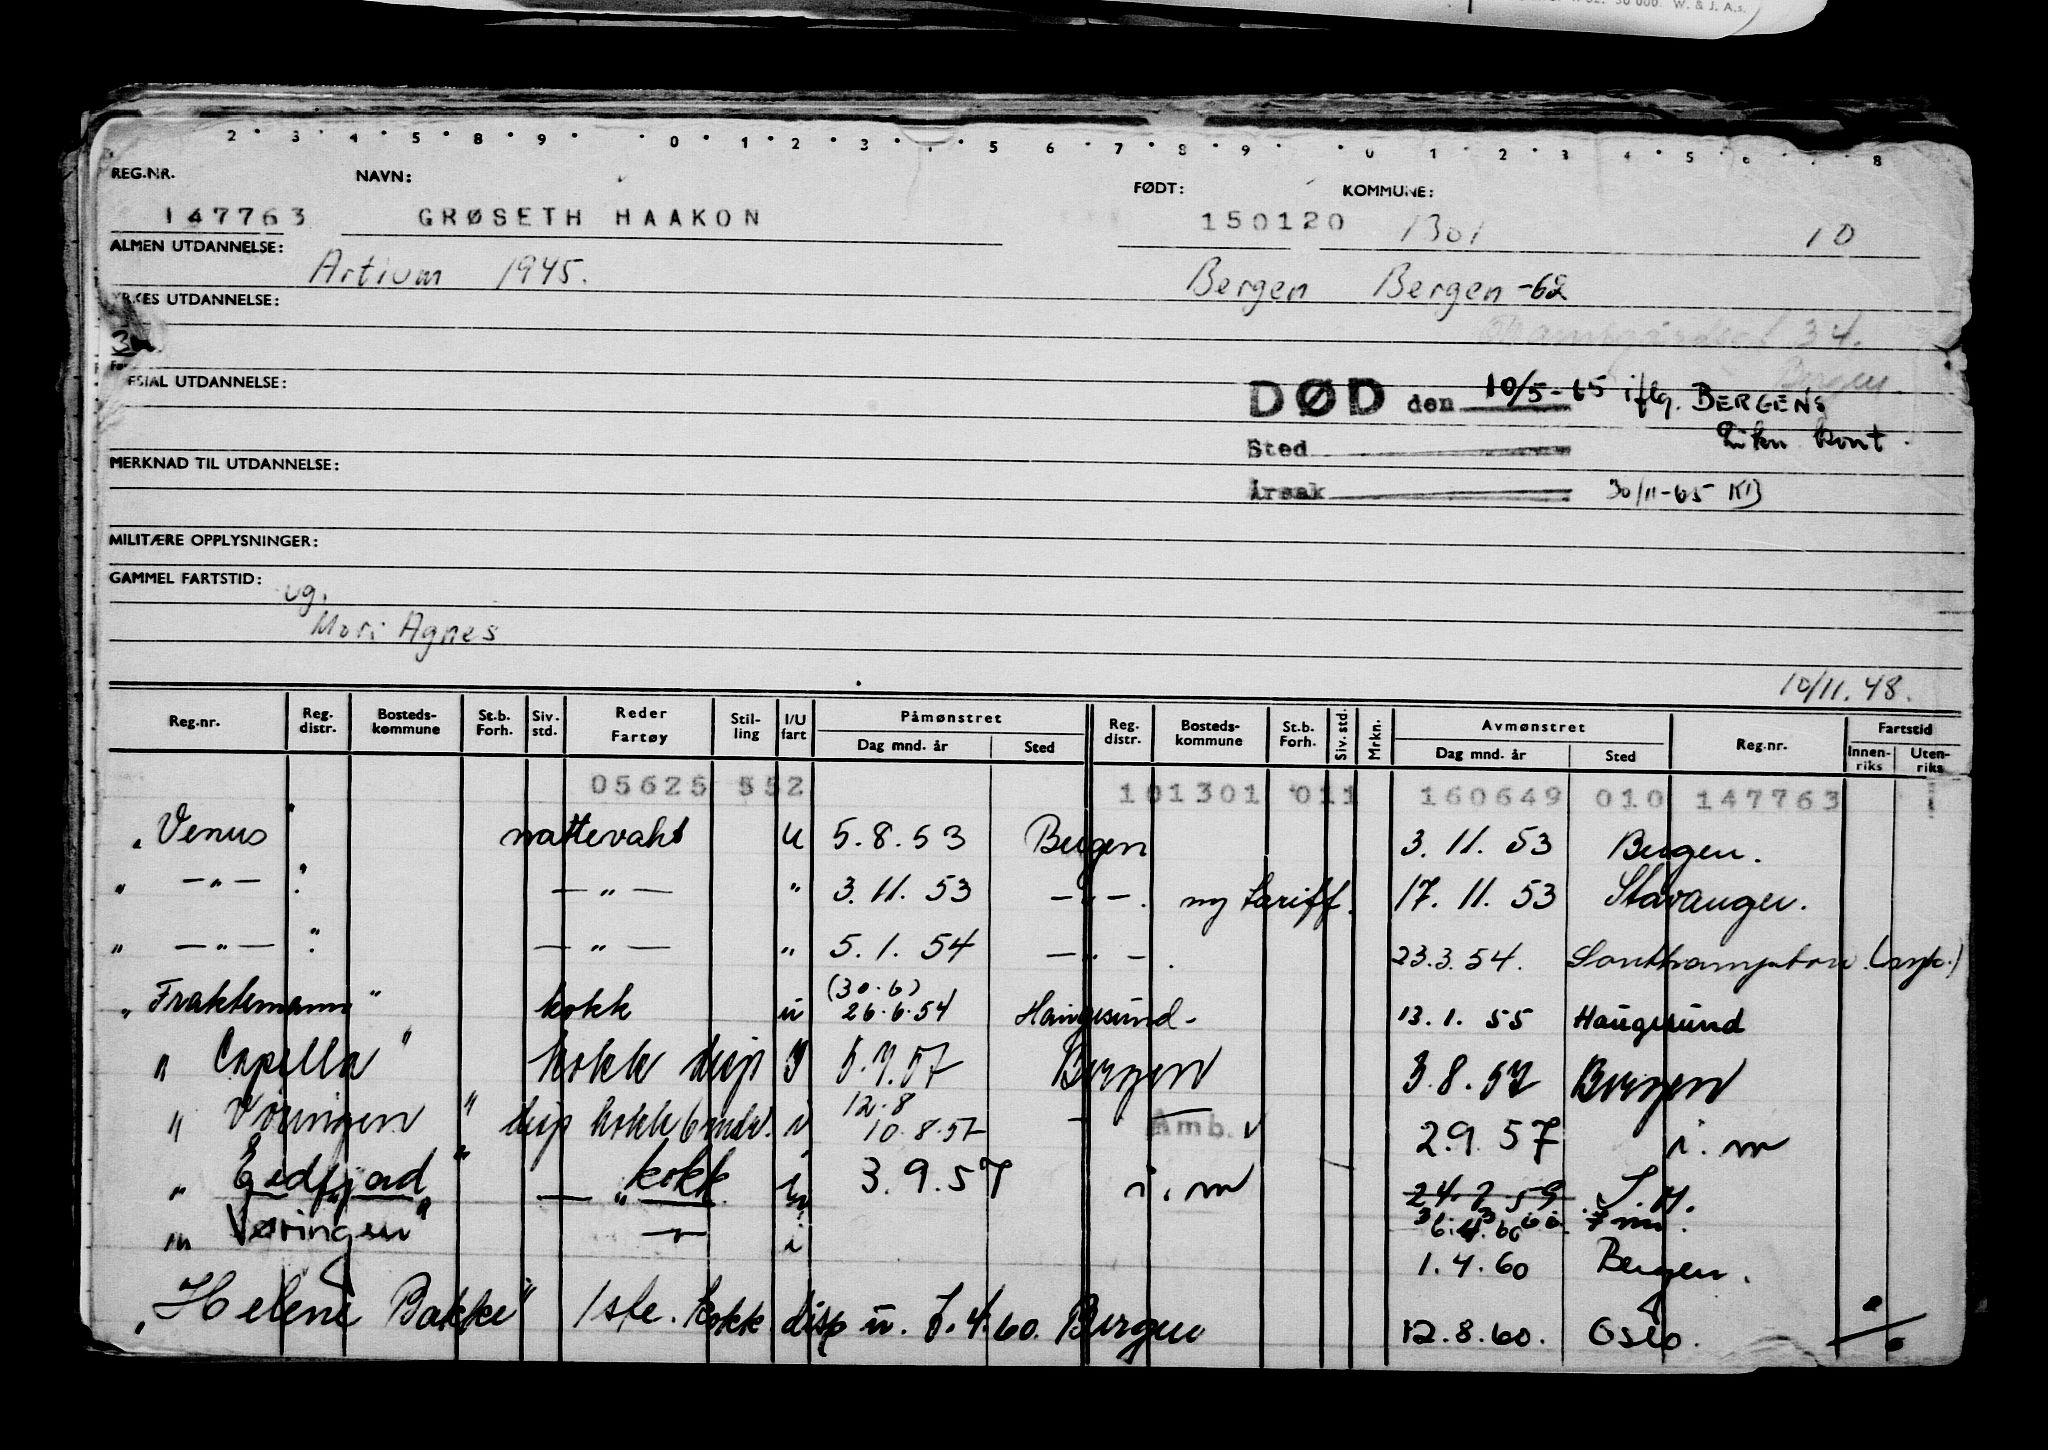 50 000. W. & J. A.s.
2 · 3 · 4 · 5 · 8 · 9 · 0 · 1 · 2 · 3 · 5 6 · 7 · 8 · 9 · 0 · 1 · 2 · 3 · 4 · 5 · 8
REG.NR. NAVN: FØDT: KOMMUNE:
147763 GRØSETH HAAKON 150120 1301 10
ALMEN UTDANNELSE:
Artium 1945. Bergen Bergen -62
UTDANNELSE:
34.
Bergen
UTDANNELSE:
DØD den 10/5-65 iflg. BERGENS
Sted kont.
MERKNAD TIL UTDANNELSE:
Årsak 30/11-65 KB
MILITÆRE OPPLYSNINGER:
GAMMEL FARTSTID:
ug.
Mori Agnes
10/11.48.
Reg.nr. Reg. distr. Bosteds-kommune St.b. Forh. Siv. std. Reder Fartøy Stil-ling I/U fart Påmønstret Reg. distr. Bosteds-kommune St.b. Forh. Siv. std. Mrkn. Avmønstret Reg.nr. Fartstid
Dag mnd. år Sted Dag mnd. år Sted Innen-riks Uten-riks
05625 552 101301 011 160649 010 147763
"Venus" nattevakt u 5.8.53 Bergen 3.11.53 Bergen.
" —"— " —"— " 3.11.53 —"—. ny tariff. 17.11.53 Stavanger.
" —"— " —"— " 5.1.54 —"—. 23.3.54. Southampton. (syk.)
(30.6)
"Fraktemann" kokk u 26.6.54 Haugesund- 13.1.55 Haugesund
"Capella" kokk disp Bergen 3.8.57 Bergen
12.8
"Vøringen" disp kokk 6 mdr. i 10.8.57 — Amb. 2.9.57 i.m
"Eidfjord" —"— kokk 3.9.57 i.m
"Vøringen" —"— i
1.4.60 Bergen.
"Helene Bakke" 1ste. kokk disp u. 7.4.60. Bergen 12.8.60. Oslo.